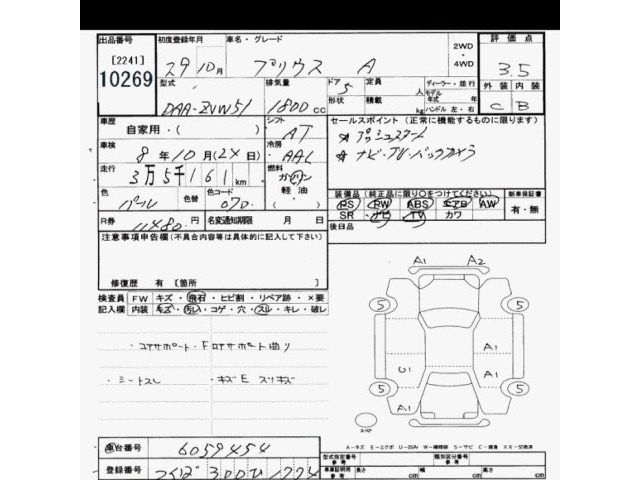 出品番号 初度登録年月 車名・グレード 2WD・4WD 評価点
[2241]
10269
29 10月 プリウス A 3.5
型式 排気量 ドア 定員 人 ディーラー・並行
DAA-ZVW51 1800 CC 5
形状 積載 kg モデル年式 年 ハンドル 左・右
外装 内装
C B
車歴 自家用・( ) シフト AT
セールスポイント (正常に機能するものに限ります)
☆プッシュスタート
☆ナビ・TV・バックカメラ
車検 8年 10月 (2X日) 冷房 AAC
走行 3万5千161km 燃料 ガソリン 軽油
色 パール 色コード 070
装備品 (純正品に限り○をつけてください) 新車保証書
PS PW ABS エアB AW 有・無
SR ナビ TV カワ
R券 11480 名変通知期限 月 日
後日品
注意事項申告欄 (不具合内容等は具体的に記入して下さい)
修復歴 有 [箇所 ]
検査員 FW キズ・飛石・ヒビ割・リペア跡・×要
記入欄 内装 キズ・汚い・コゲ・穴・スレ・キレ・破レ
・コアサポート・Fロアサポート曲り
・シートスレ ・キズE スリキズ
A1 A2
5 5
A1
U1 A1
5 5
A1
スペア
A-キズ E-エクボ U-凹み W-補修跡 S-サビ C-腐食 XX-交換済
車台番号 6059454
登録番号 300 1774
型式指定番号 参考 類別区分番号 参考
車庫証明用 参考 長さ cm 幅 cm 高さ cm